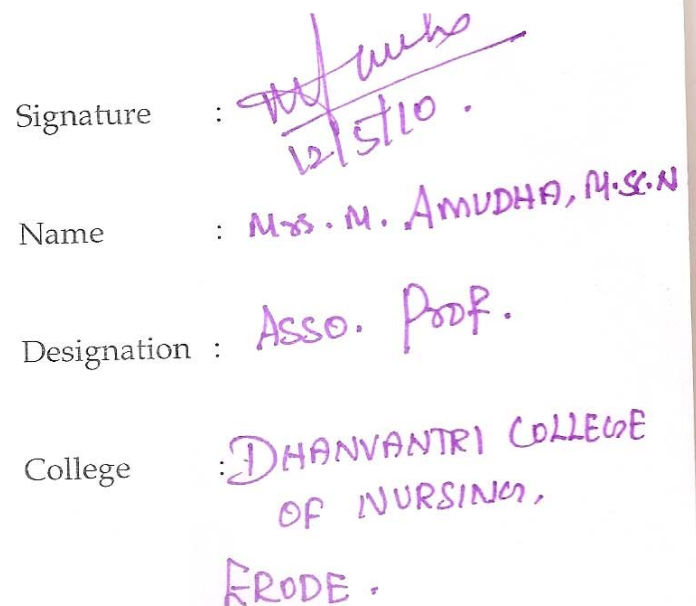 Signature :
12/5/10.
Name : Mrs. M. AMUDHA, M.SC.N
Designation : ASSO. Prof.
College : DHANVANTRI COLLEGE
OF NURSING,
ERODE.